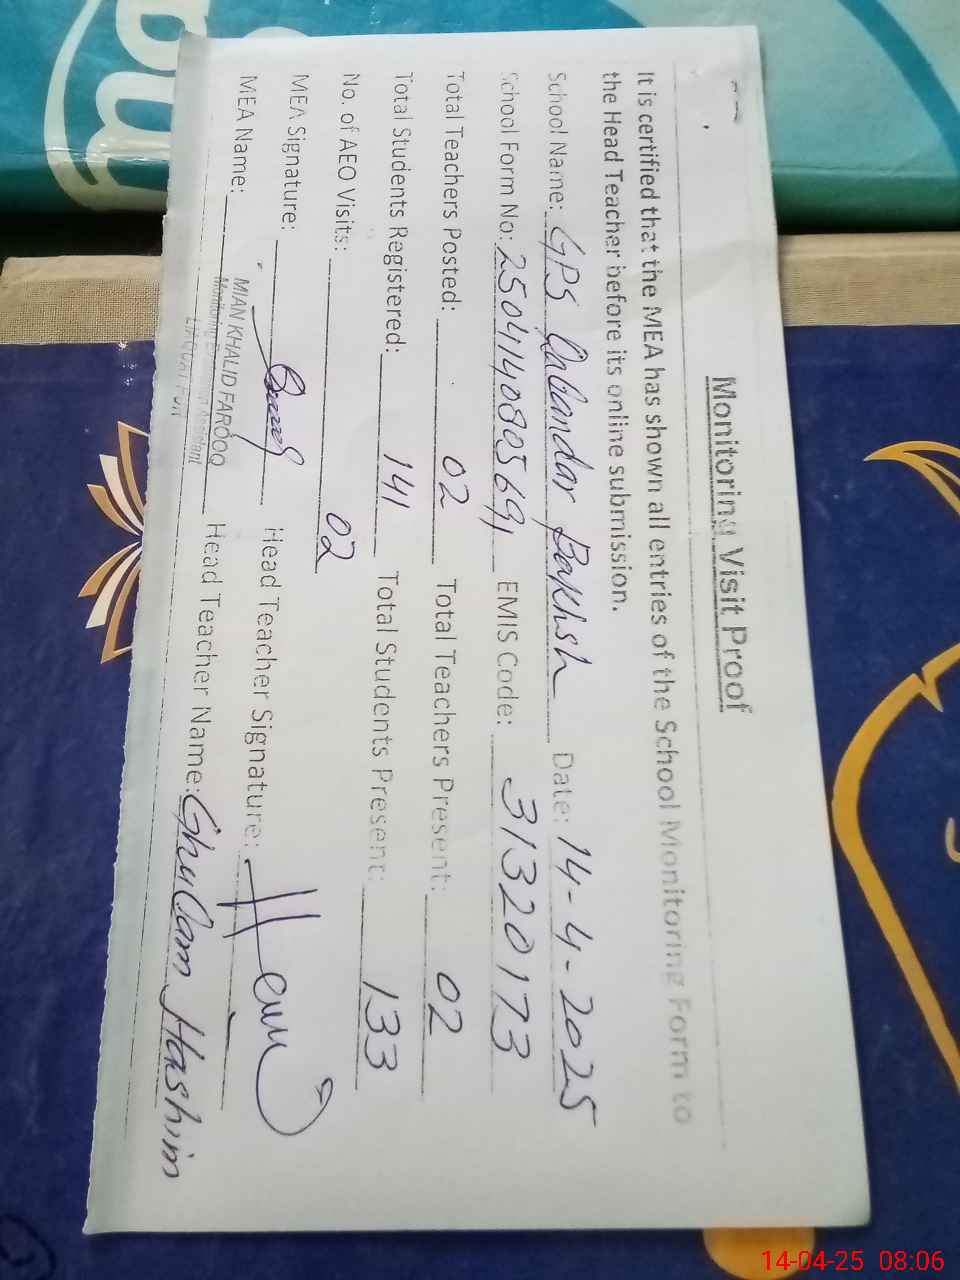 Monitoring Visit Proof
It is certified that the MEA has shown all entries of the School Monitoring Form to
the Head Teacher before its online submission.
School Name: GPS Qalandar Bakhsh Date: 14-4-2025
School Form No: EMIS Code: 31320173
Total Teachers Posted: 02 Total Teachers Present: 02
Total Students Registered: 141 Total Students Present: 133
No. of AEO Visits: 02
MEA Signature: Head Teacher Signature:
MEA Name: MIAN KHALID FAROOQ Head Teacher Name: Ghulam Hashim
Monitoring Assistant
14-04-25 08:06